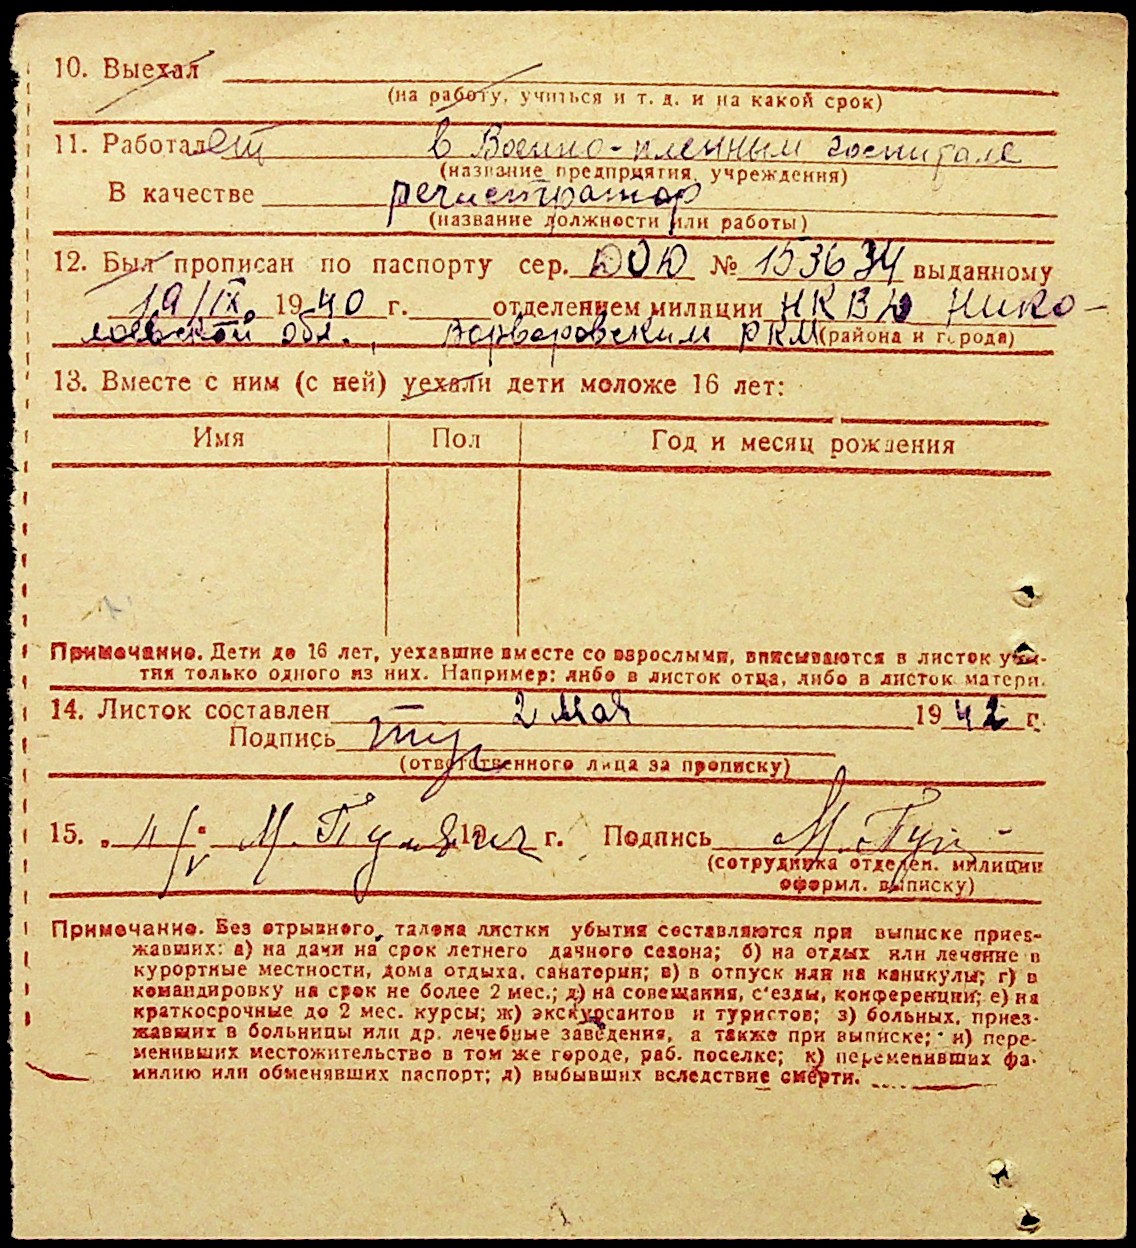 10. Выехал
(на работу, учиться и т. д. и на какой срок)
11. Работает в Военно-пленным госпитале
(название предприятия, учреждения)
В качестве регистратор
(название должности или работы)
12. Был прописан по паспорту сер. ДОД № 153634 выданному
19/IX. 1940 г. отделением милиции НКВД Нико-
лаевской обл., Варваровским РКМ (района и города)
13. Вместе с ним (с ней) уехали дети моложе 16 лет:
Имя Пол Год и месяц рождения
Примечание. Дети до 16 лет, уехавшие вместе со взрослыми, вписываются в листок убы-
тия только одного из них. Например: либо в листок отца, либо в листок матери.
14. Листок составлен 2 мая 1942 г.
Подпись
(ответственного лица за прописку)
15. „ 4/V " М. 19 г. Подпись М.
(сотрудника отделен. милиции
оформл. выписку)
Примечание. Без отрывного талона листки убытия составляются при выписке приез-
жавших: а) на дачи на срок летнего дачного сезона; б) на отдых или лечение в
курортные местности, дома отдыха, санатории; в) в отпуск или на каникулы; г) в
командировку на срок не более 2 мес.; д) на совещания, с'езды, конференции; е) на
краткосрочные до 2 мес. курсы; ж) экскурсантов и туристов; з) больных, приез-
жавших в больницы или др. лечебные заведения, а также при выписке; и) пере-
менивших местожительство в том же городе, раб. поселке; к) переменивших фа-
милию или обменявших паспорт; л) выбывших вследствие смерти.